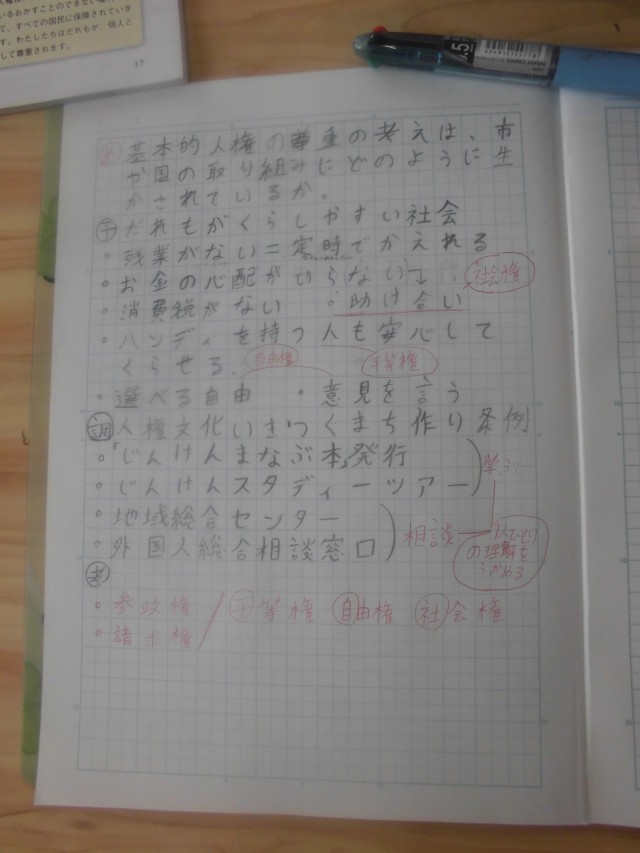 いるおかすことのできない
て、すべての国民に保障されていま
す。わたしたちはだれもが、個人と
して尊重されます。
17
基本的人権の尊重の考えは、市
や国の取り組みにどのように生
かされているか。
予 だれもがくらしやすい社会
・残業がない=定時でかえれる
・お金の心配がいらない
社会権
・消費税がない ・助け合い
・ハンディを持つ人も安心して
くらせる。 自由権 平等権
・選べる自由 ・意見を言う
調 人権文化いきづくまち作り条例
・「じんけんまなぶ本」発行
・じんけんスタディーツアー
学ぶ
・地域総合センター
・外国人総合相談窓口
相談
1人ひとり
の理解を
ふかめる
考
・参政権 / 平等権 自由権 社会権
・請求権